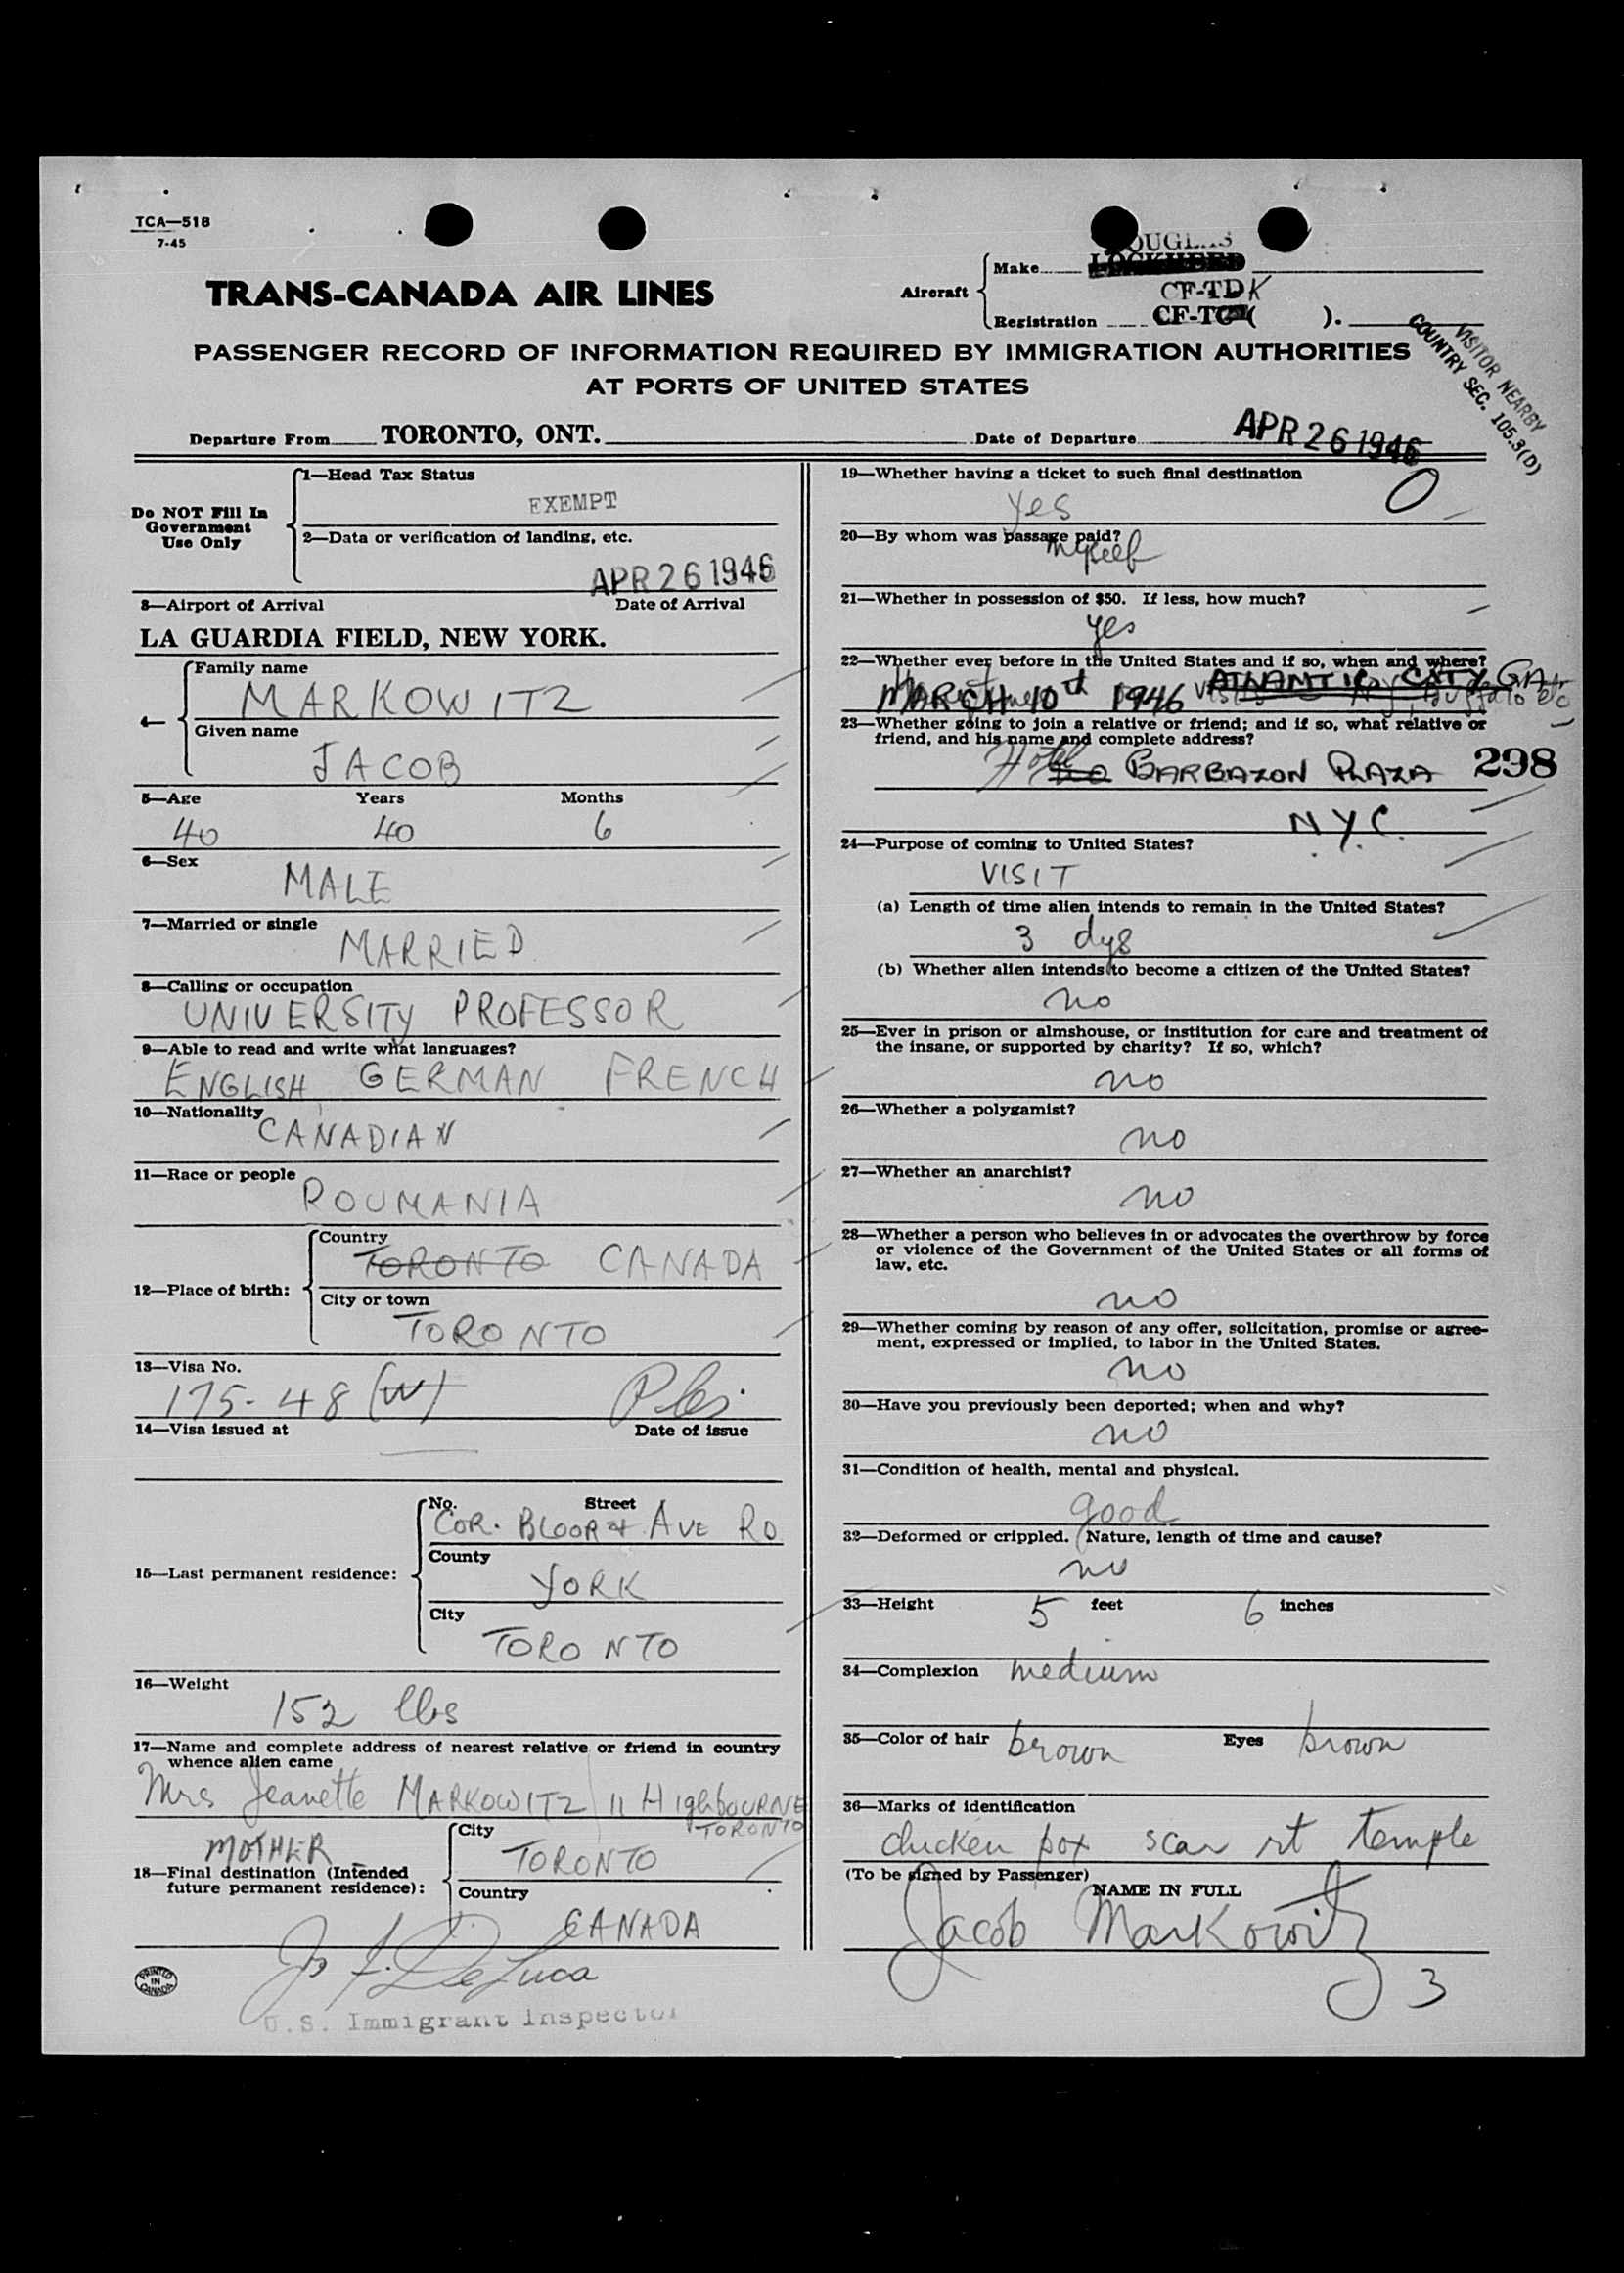 TCA—518
7-45
TRANS-CANADA AIR LINES
Aircraft
Make
DOUGLAS
LOCKHEED
CF-TDK
Registration CF-TC ( ).
PASSENGER RECORD OF INFORMATION REQUIRED BY IMMIGRATION AUTHORITIES
AT PORTS OF UNITED STATES
VISITOR NEARBY
COUNTRY SEC. 105.3(D)
Departure From TORONTO, ONT. Date of Departure APR 26 1946
Do NOT Fill In
Government
Use Only
1—Head Tax Status
EXEMPT
2—Data or verification of landing, etc.
APR 26 1946
3—Airport of Arrival Date of Arrival
LA GUARDIA FIELD, NEW YORK.
4— Family name
MARKOWITZ
Given name
JACOB
5—Age Years Months
40 40 6
6—Sex
MALE
7—Married or single
MARRIED
8—Calling or occupation
UNIVERSITY PROFESSOR
9—Able to read and write what languages?
ENGLISH GERMAN FRENCH
10—Nationality
CANADIAN
11—Race or people
ROUMANIA
12—Place of birth:
Country
TORONTO CANADA
City or town
TORONTO
13—Visa No.
175-48 (W)
14—Visa issued at Date of issue
15—Last permanent residence:
No. Street
COR. BLOOR & AVE RD
County
YORK
City
TORONTO
16—Weight
152 lbs
17—Name and complete address of nearest relative or friend in country
whence alien came
Mrs Jeanette MARKOWITZ 11 HIGHBOURNE
TORONTO
MOTHER
18—Final destination (Intended
future permanent residence):
City
TORONTO
Country
CANADA
De Luca
U.S. Immigrant Inspector
PRINTED
IN
CANADA
19—Whether having a ticket to such final destination
yes
0
20—By whom was passage paid?
myself
21—Whether in possession of $50. If less, how much?
yes
22—Whether ever before in the United States and if so, when and where?
MARCH 10th 1946 visits ATLANTIC CITY N.Y., Buffalo etc
23—Whether going to join a relative or friend; and if so, what relative or
friend, and his name and complete address?
Hotel BARBAZON PLAZA
298
N.Y.C.
24—Purpose of coming to United States?
VISIT
(a) Length of time alien intends to remain in the United States?
3 dys
(b) Whether alien intends to become a citizen of the United States?
no
25—Ever in prison or almshouse, or institution for care and treatment of
the insane, or supported by charity? If so, which?
no
26—Whether a polygamist?
no
27—Whether an anarchist?
no
28—Whether a person who believes in or advocates the overthrow by force
or violence of the Government of the United States or all forms of
law, etc.
no
29—Whether coming by reason of any offer, solicitation, promise or agree-
ment, expressed or implied, to labor in the United States.
no
30—Have you previously been deported; when and why?
no
31—Condition of health, mental and physical.
good
32—Deformed or crippled. Nature, length of time and cause?
no
33—Height 5 feet 6 inches
34—Complexion medium
35—Color of hair brown Eyes brown
36—Marks of identification
chicken pox scar rt temple
(To be signed by Passenger)
NAME IN FULL
Jacob Markowitz
3